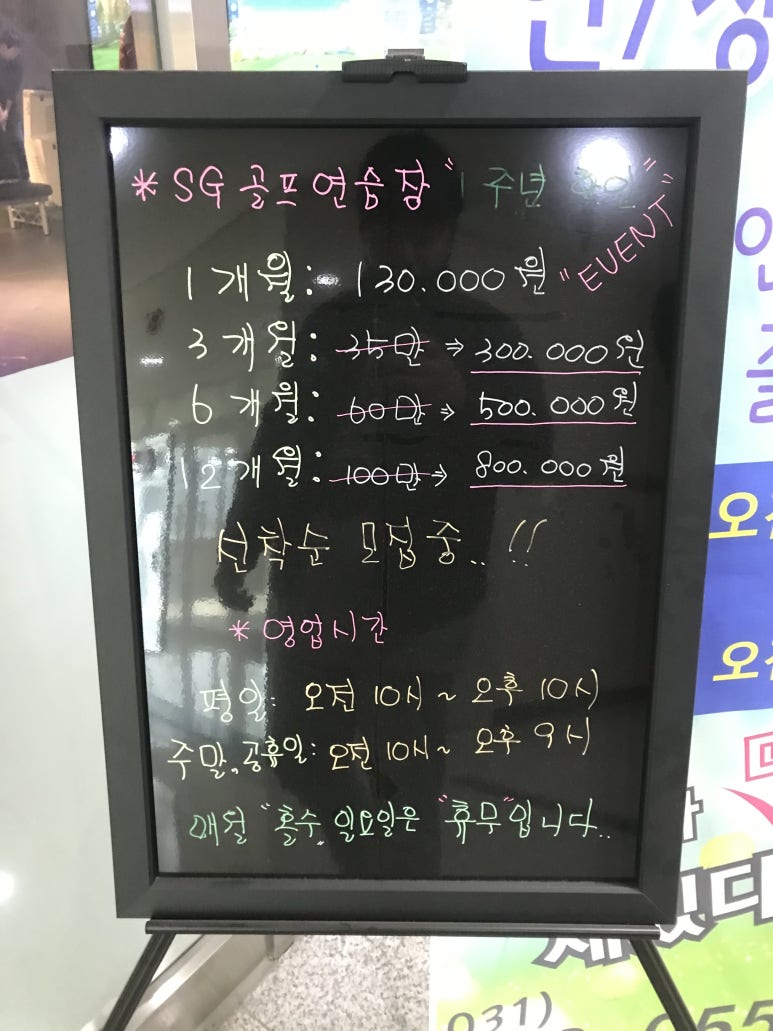 * SG 골프연습장 "1주년 할인"
"EVENT"
1개월: 130.000원
3개월: 35만 ⇒ 300.000원
6개월: 60만 ⇒ 500.000원
12개월: 100만 ⇒ 800.000원
선착순 모집중..!!
* 영업시간
평일: 오전 10시 ~ 오후 10시
주말,공휴일: 오전 10시 ~ 오후 9시
매월 "홀수" 일요일은 "휴무"입니다..
031)